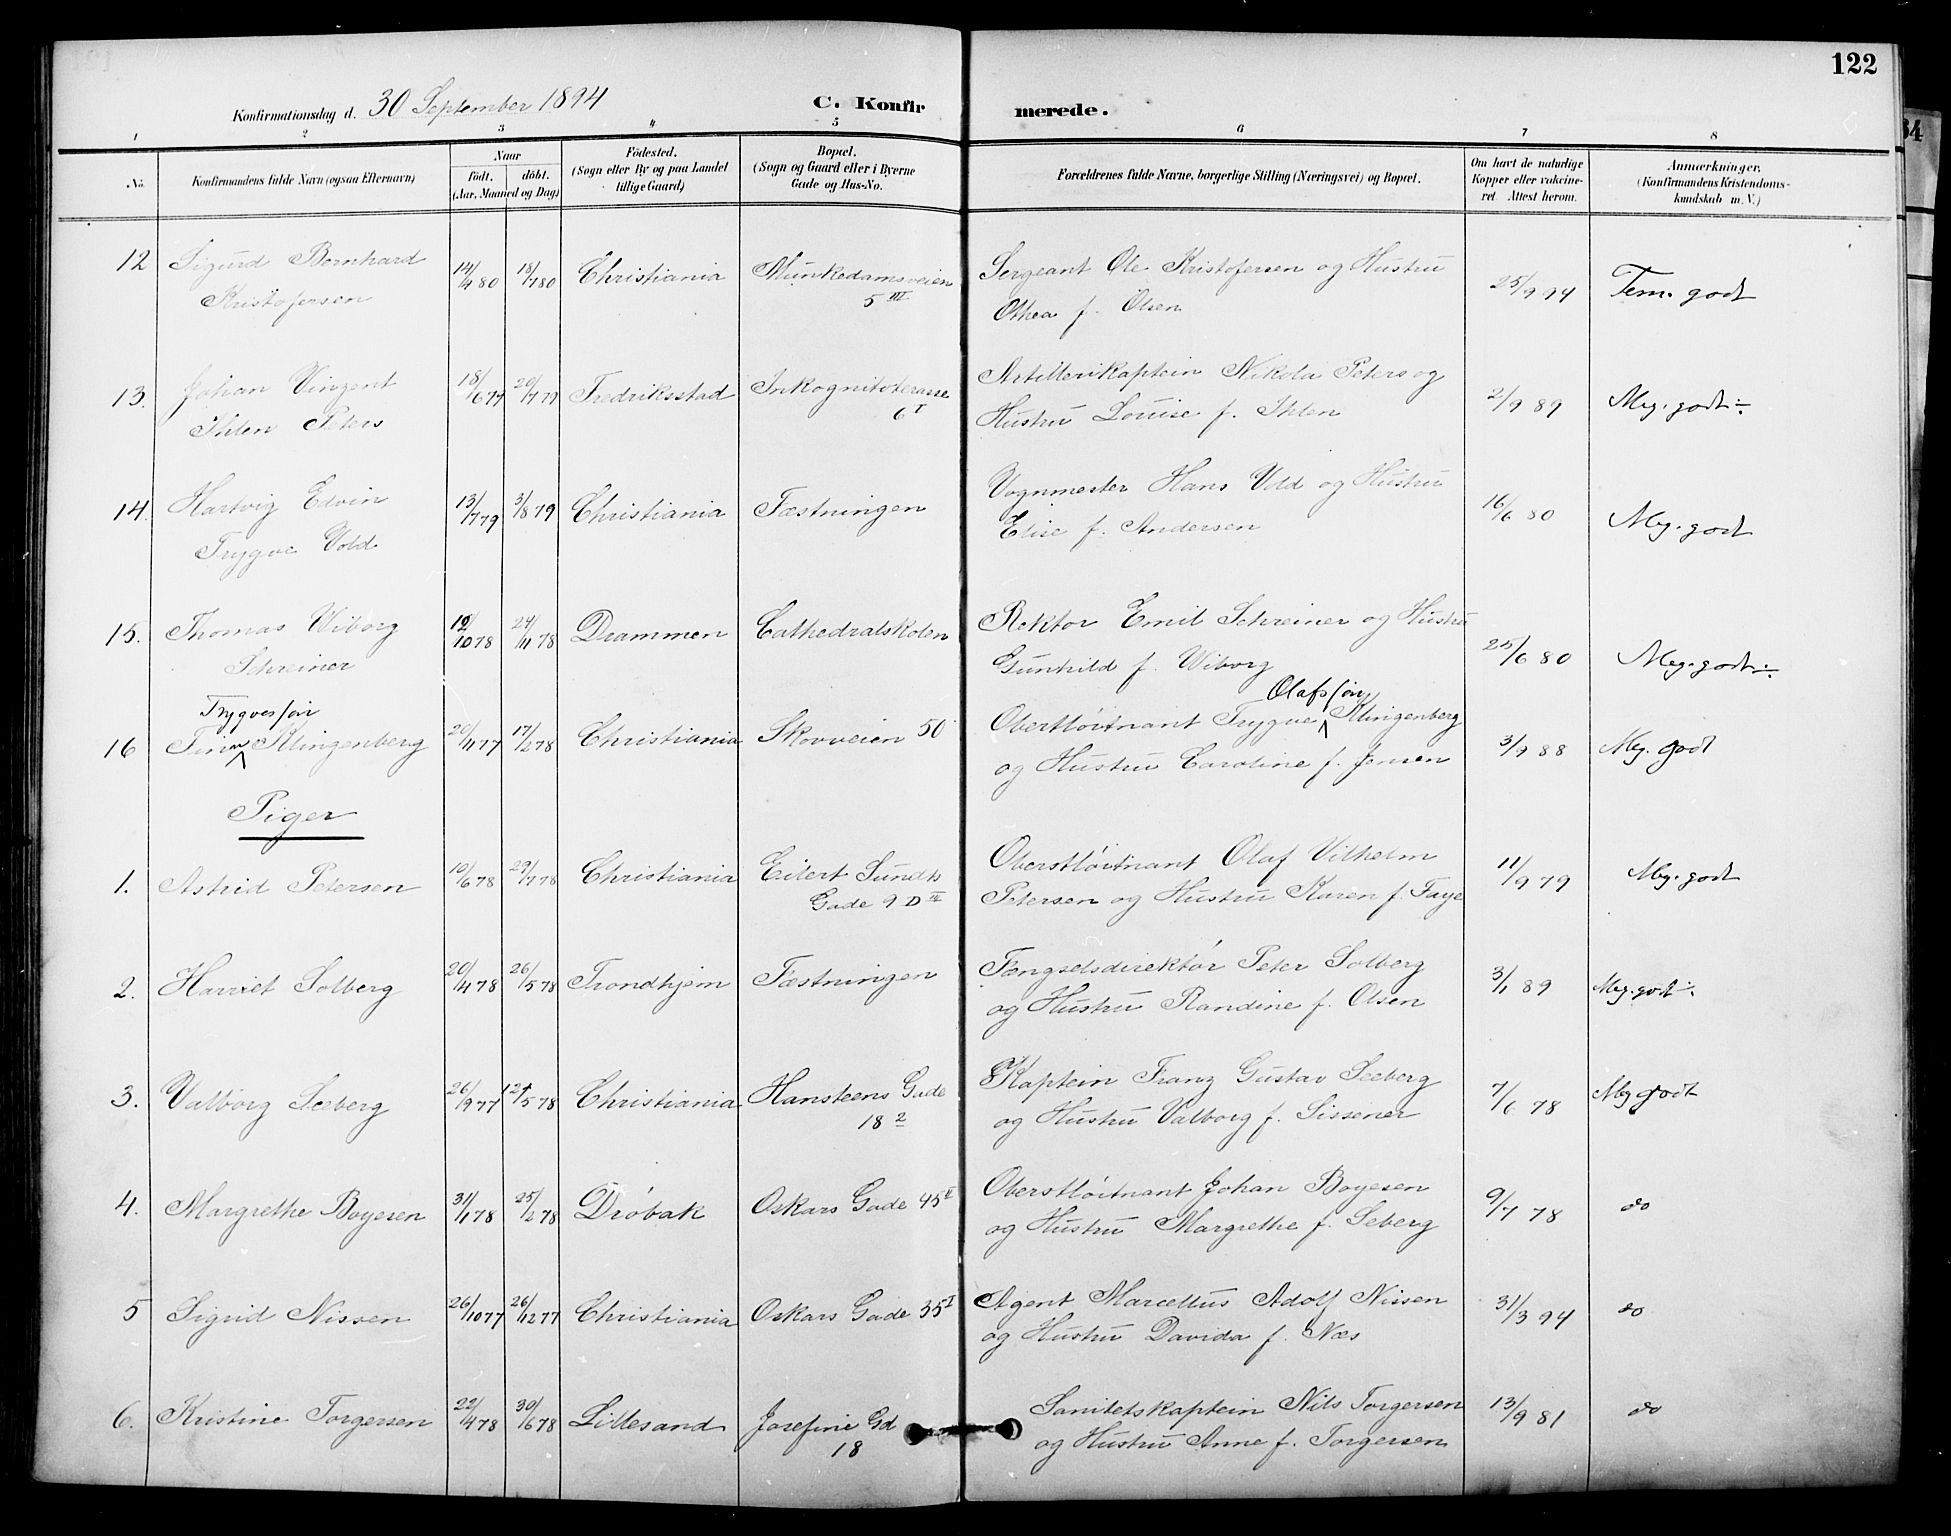 122
Konfirmationsdag d. 30 September 1894 C. Konfirmerede.
1 2 3 4 5 6 7 8
No. Konfirmandens fulde Navn (ogsaa Efternavn) Naar født. døbt. (Aar, Maaned og Dag) Fødested. (Sogn eller By og paa Landet tillige Gaard) Bopæl. (Sogn og Gaard eller i Byerne Gade og Hus-No. Forældrenes fulde Navne, borgerlige Stilling (Næringsvei) og Bopæl. Om havt de naturlige Kopper eller vakcineret. Attest herom. Anmærkninger. (Konfirmandens Kristendomskundskab m. V.)
12 Sigurd Bernhard 14/4 80 18/7 80 Christiania Munkedamsveien Sergeant Ole Kristofersen og Hustru 25/9 94 Tem. godt
Kristofersen 5 III Othea f. Olsen
13. Johan Vingent 18/6 79 20/7 79 Fredriksstad Inkognitoterasse Artillerikaptein Nikolai Peters og 2/9 89 Meg. godt ÷
Ihlen Peters 6 I Hustru Louise f. Ihlen
14. Hartvig Edvin 13/7 79 3/8 79 Christiania Fæstningen Vognmester Hans Vold og Hustru 16/6 80 Meg. godt
Trygve Vold Elise f. Andersen
15. Thomas Wiborg 10/78 24/11 78 Drammen Cathedralskolen Rektor Emil Schreiner og Hustru 25/6 80 Meg. godt ÷
Schreiner Gunhild f. Wiborg
Trygvessøn Olafssøn
16 Finn Klingenberg 20/11 77 17/2 78 Christiania Skovveien 50 Oberstløitnant Trygve Klingenberg 3/9 88 Meg. godt
og Hustru Caroline f. Jensen
Piger
1. Astrid Petersen 10/6 78 29/7 78 Christiania Eilert Sundts Oberstløitnant Olaf Vilhelm 11/9 79 Meg. godt
Gade 9 D Petersen og Hustru Karen f. Faye
2. Harriet Solberg 20/4 78 26/5 78 Trondhjem Fæstningen Fængselsdirektør Peter Solberg 3/1 89 Meg. godt ÷
og Hustru Randine f. Olsen
3. Valborg Seeberg 26/9 77 5 78 Christiania Hansteens Gade Kaptein Franz Gustav Seeberg 7/6 78 Meg godt
18 2 og Hustru Valborg f. Sissener
4. Margrethe Boyesen 31/1 78 25/2 78 Drøbak Oskars Gade 45 II Oberstløitnant Johan Boyesen 9/7 78 do
og Hustru Margrethe f. Seberg
5 Sigrid Nissen 26/10 77 26/12 77 Christiania Oskars Gade 35 I Agent Marcellus Adolf Nissen 31/3 94 do
og Hustru Davida f. Næs
6. Kristine Torgersen 22/4 78 30/6 78 Lillesand Josefine Gd Sanitetskaptein Nils Torgersen 13/9 81 do
18 og Hustru Anne f. Torgersen